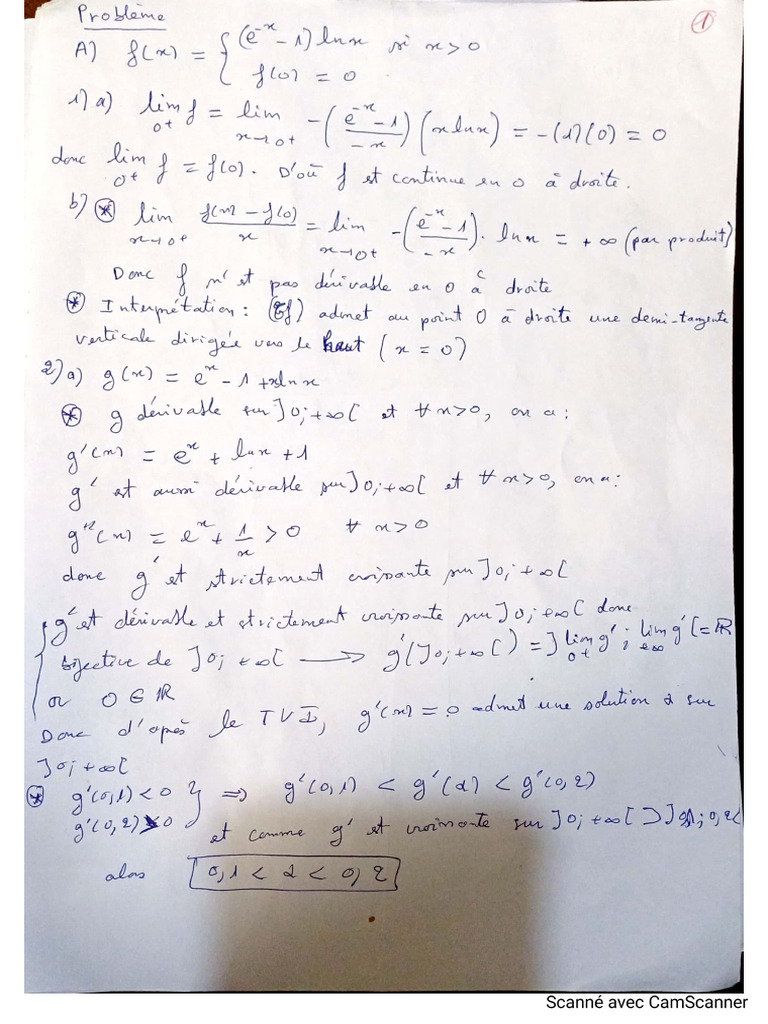 Problème
①
A) f(x) = { (e^-x - 1) ln x si x > 0
f(0) = 0
1) a) lim f = lim -((e^-x - 1)/(-x)) (x ln x) = -(1)(0) = 0
0+ x→0+
donc lim f = f(0). D'où f est continue en 0 à droite.
0+
b) ⊛ lim (f(x) - f(0))/x = lim -((e^-x - 1)/(-x)). ln x = +∞ (par produit)
x→0+ x→0+
Donc f n'est pas dérivable en 0 à droite
⊛ Interprétation : (Cf) admet au point O à droite une demi-tangente
verticale dirigée vers le haut (x = 0)
2) a) g(x) = e^x - 1 + x ln x
⊛ g dérivable sur ]0; +∞[ et ∀ x>0, on a :
g'(x) = e^x + ln x + 1
g' est aussi dérivable sur ]0; +∞[ et ∀ x>0, on a :
g''(x) = e^x + 1/x > 0 ∀ x > 0
donc g' est strictement croissante sur ]0; +∞[
{ g' est dérivable et strictement croissante sur ]0; +∞[ donc
bijective de ]0; +∞[ → g'(]0; +∞[) = ]lim g'; lim g'[ = ℝ
0+ +∞
or 0 ∈ ℝ
Donc d'après le TVI, g'(x) = 0 admet une solution α sur
]0; +∞[
⊛ g'(0,1) < 0 } ⇒ g'(0,1) < g'(α) < g'(0,2)
g'(0,2) > 0
et comme g' est croissante sur ]0; +∞[ ⊃ ]0,1; 0,2[
alors 0,1 < α < 0,2
Scanné avec CamScanner